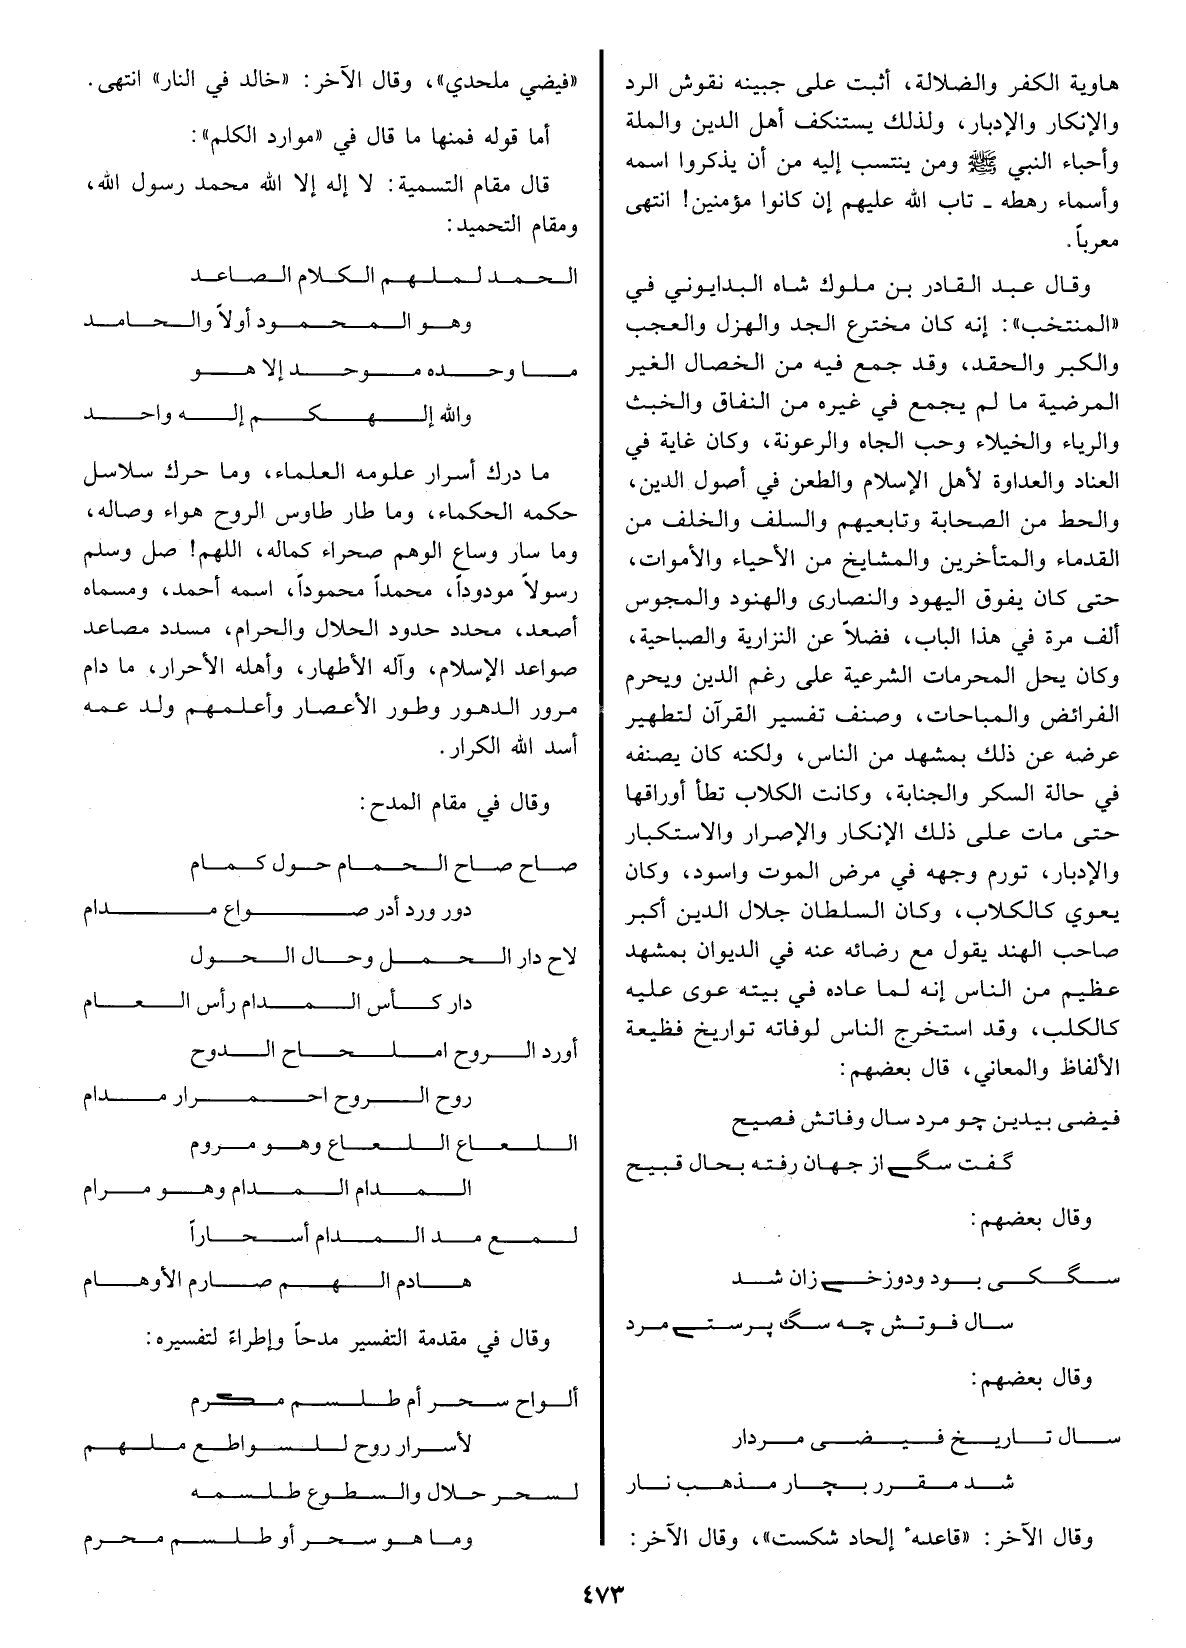 هاوية الكفر والضلالة، أثبت على جبينه نقوش الرد
والإنكار والإدبار، ولذلك يستنكف أهل الدين والملة
وأحباء النبي ﷺ ومن ينتسب إليه من أن يذكروا اسمه
وأسماء رهطه ـ تاب الله عليهم إن كانوا مؤمنين! انتهى
معرباً.
وقال عبد القادر بن ملوك شاه البدايوني في
«المنتخب»: إنه كان مخترع الجد والهزل والعجب
والكبر والحقد، وقد جمع فيه من الخصال الغير
المرضية ما لم يجمع في غيره من النفاق والخبث
والرياء والخيلاء وحب الجاه والرعونة، وكان غاية في
العناد والعداوة لأهل الإسلام والطعن في أصول الدين،
والحط من الصحابة وتابعيهم والسلف والخلف من
القدماء والمتأخرين والمشايخ من الأحياء والأموات،
حتى كان يفوق اليهود والنصارى والهنود والمجوس
ألف مرة في هذا الباب، فضلاً عن النزارية والصباحية،
وكان يحل المحرمات الشرعية على رغم الدين ويحرم
الفرائض والمباحات، وصنف تفسير القرآن لتطهير
عرضه عن ذلك بمشهد من الناس، ولكنه كان يصنفه
في حالة السكر والجنابة، وكانت الكلاب تطأ أوراقها
حتى مات على ذلك الإنكار والإصرار والاستكبار
والإدبار، تورم وجهه في مرض الموت واسود، وكان
يعوي كالكلاب، وكان السلطان جلال الدين أكبر
صاحب الهند يقول مع رضائه عنه في الديوان بمشهد
عظيم من الناس إنه لما عاده في بيته عوى عليه
كالكلب، وقد استخرج الناس لوفاته تواريخ فظيعة
الألفاظ والمعاني، قال بعضهم:
فيضى بيدين چو مرد سال وفاتش فصيح
گفت سگے از جهان رفته بحال قبيح
وقال بعضهم:
سگكى بود ودوزخے زان شد
سال فوتش چه سگ پرستے مرد
وقال بعضهم:
سال تاريخ فيضى مردار
شد مقرر بچار مذهب نار
وقال الآخر: «قاعدهٔ إلحاد شكست»، وقال الآخر:
«فيضي ملحدي»، وقال الآخر: «خالد في النار» انتهى.
أما قوله فمنها ما قال في «موارد الكلم»:
قال مقام التسمية: لا إله إلا الله محمد رسول الله،
ومقام التحميد:
الحمد لملهم الكلام الصاعد
وهو المحمود أولاً والحامد
ما وحده موحد إلا هو
والله إلهكم إله واحد
ما درك أسرار علومه العلماء، وما حرك سلاسل
حكمه الحكماء، وما طار طاوس الروح هواء وصاله،
وما سار وساع الوهم صحراء كماله، اللهم! صل وسلم
رسولاً مودوداً، محمداً محموداً، اسمه أحمد، ومسماه
أصعد، محدد حدود الحلال والحرام، مسدد مصاعد
صواعد الإسلام، وآله الأطهار، وأهله الأحرار، ما دام
مرور الدهور وطور الأعصار وأعلمهم ولد عمه
أسد الله الكرار.
وقال في مقام المدح:
صاح صاح الحمام حول كمام
دور ورد أدر صواع مدام
لاح دار الحمل وحال الحول
دار كأس المدام رأس العام
أورد الروح املحاح الدوح
روح الروح احمرار مدام
اللعاع اللعاع وهو مروم
المدام المدام وهو مرام
لمع مد المدام أسحاراً
هادم الهم صارم الأوهام
وقال في مقدمة التفسير مدحاً وإطراءً لتفسيره:
ألواح سحر أم طلسم مكرم
لأسرار روح للسواطع ملهم
لسحر حلال والسطوع طلسمه
وما هو سحر أو طلسم محرم
٤٧٣